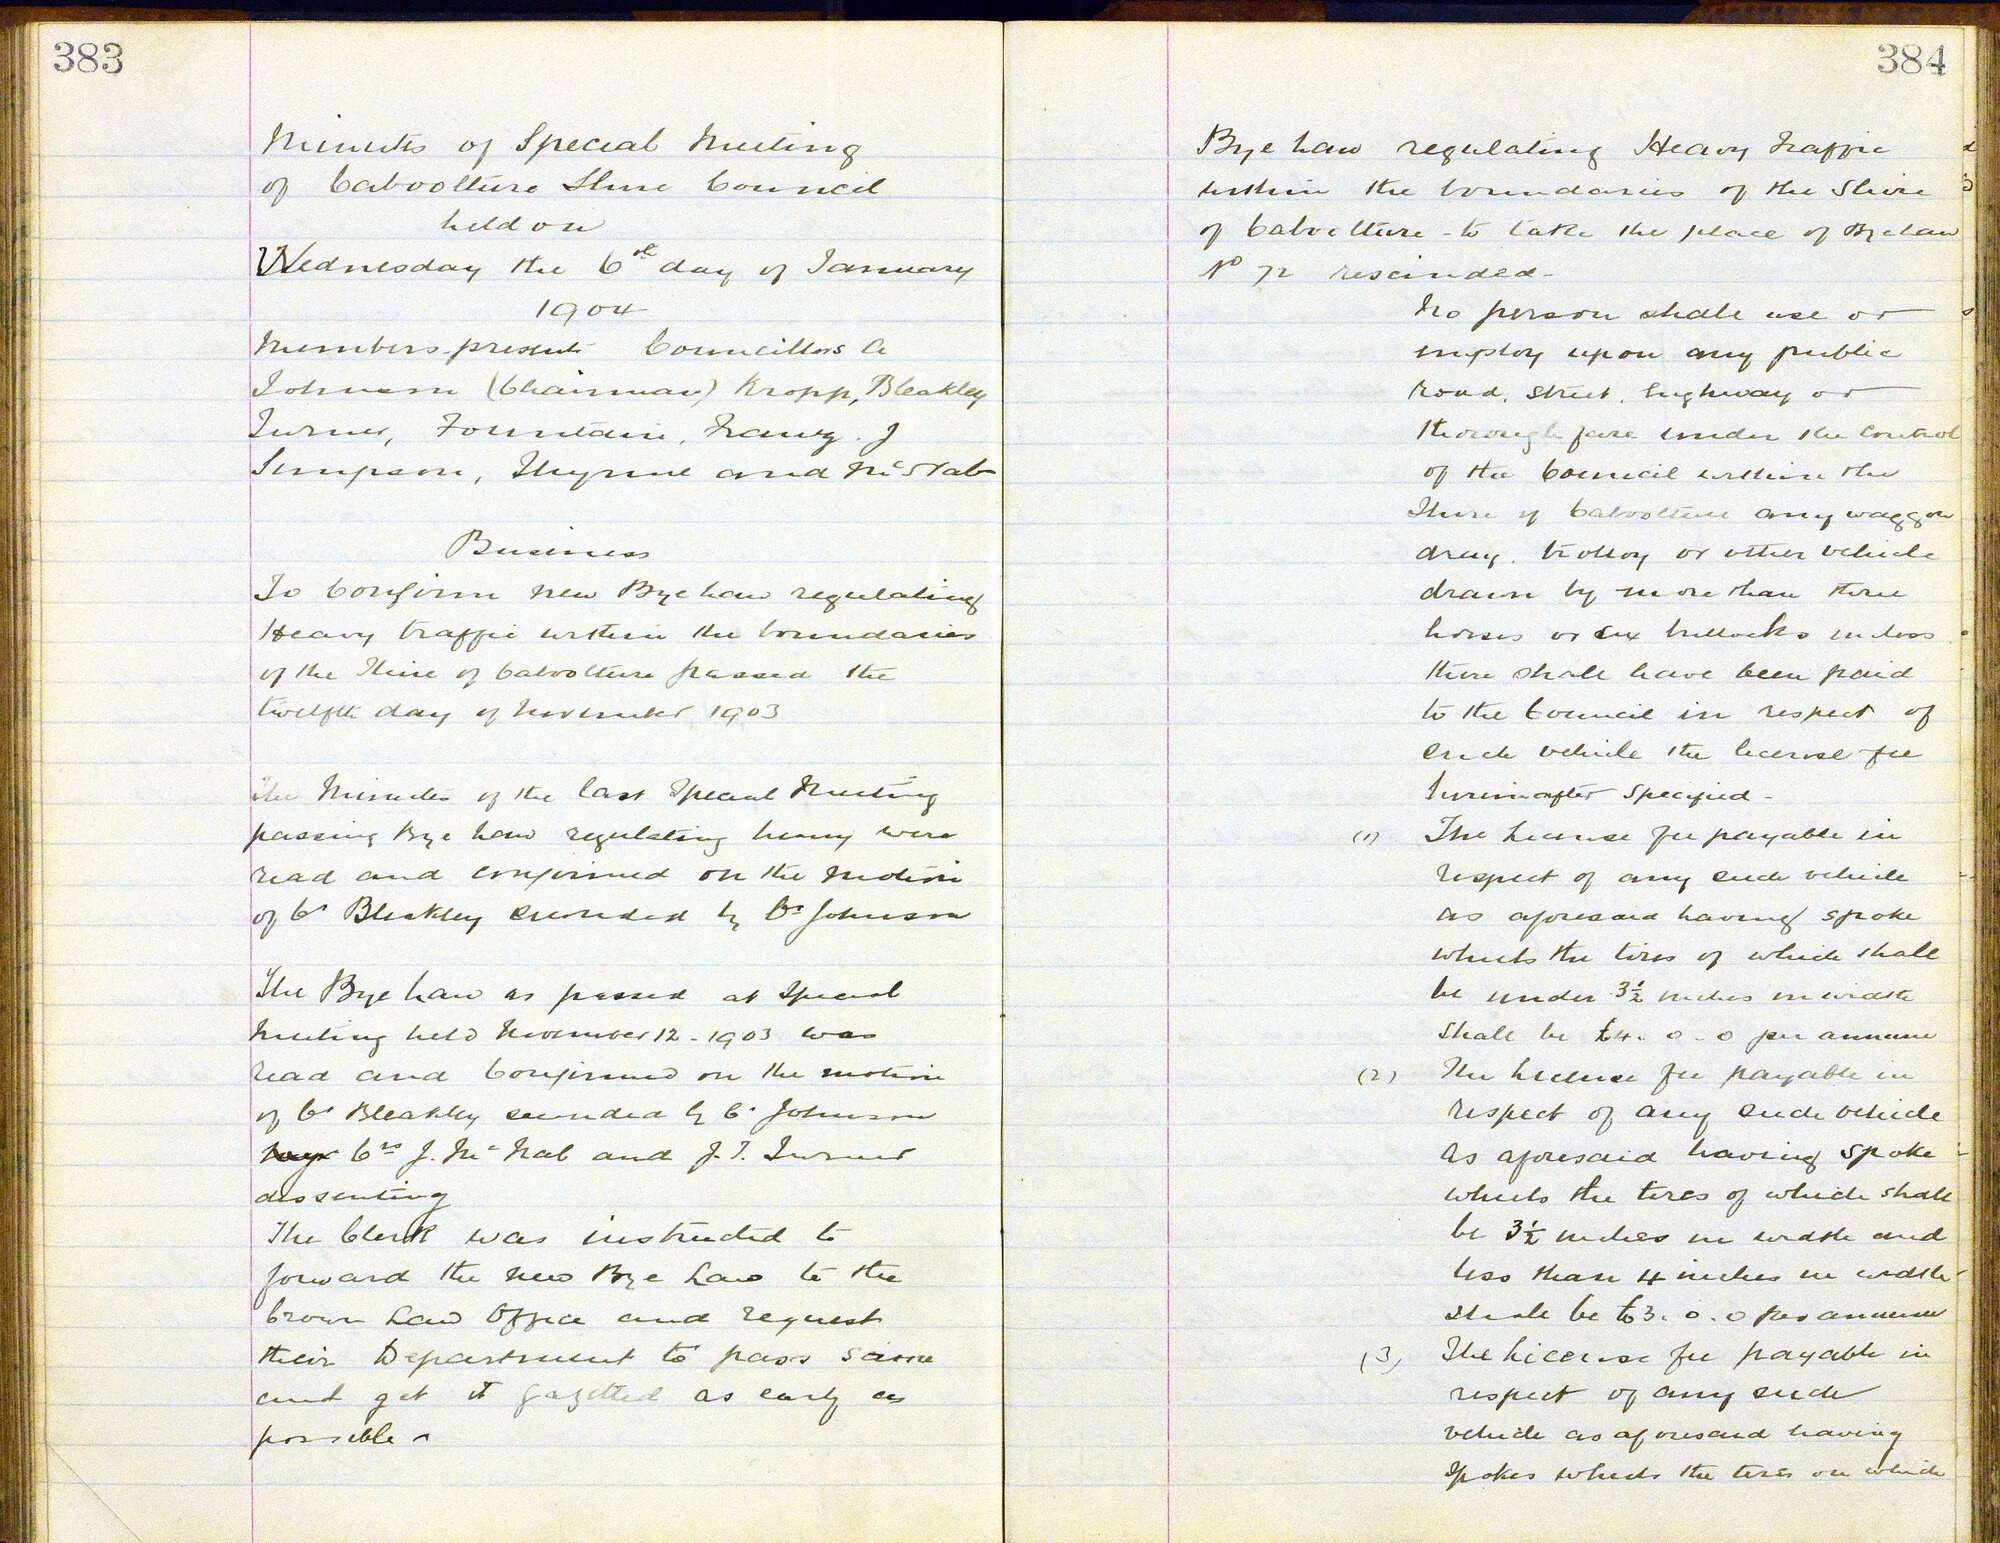 383
Minutes of Special Meeting
of Caboolture Shire Council
held on
Wednesday the 6th day of January
1904
Members present Councillors A
Johnson (Chairman) Kropp, Bleakley
Turner, Fountain, Franz. J
Simpson, Thynne and McNab
Business
To Confirm new Bye Law regulating
Heavy traffic within the boundaries
of the Shire of Caboolture passed the
twelfth day of November 1903
The Minutes of the last Special Meeting
passing Bye Law regulating heavy were
read and confirmed on the motion
of Cr Bleakley seconded by Cr Johnson
The Bye Law as passed at Special
Meeting held November 12 - 1903 was
read and Confirmed on the motion
of Cr Bleakley seconded by Cr Johnson
Crs J. McNab and J. T. Turner
dissenting
The Clerk was instructed to
forward the new Bye Law to the
Crown Law Office and request
their Department to pass same
and get it gazetted as early as
possible -
384
Bye Law regulating Heavy Traffic
within the boundaries of the Shire
of Caboolture - to take the place of Byelaw
No 72 rescinded -
No person shall use or
employ upon any public
road, street, highway or
thoroughfare under the Control
of the Council within the
Shire of Caboolture any waggon
dray, trolley or other vehicle
drawn by more than three
horses or six bullocks unless
there shall have been paid
to the Council in respect of
such vehicle the license fee
hereinafter specified -
(1) The License fee payable in
respect of any such vehicle
as aforesaid having spoke
wheels the tires of which shall
be under 3½ inches in width
shall be £4. 0. 0 per annum
(2) The License fee payable in
respect of any such vehicle
as aforesaid having spoke
wheels the tires of which shall
be 3½ inches in width and
less than 4 inches in width
shall be £3. 0. 0 per annum
(3) The License fee payable in
respect of any such
vehicle as aforesaid having
spokes wheels the tires on which